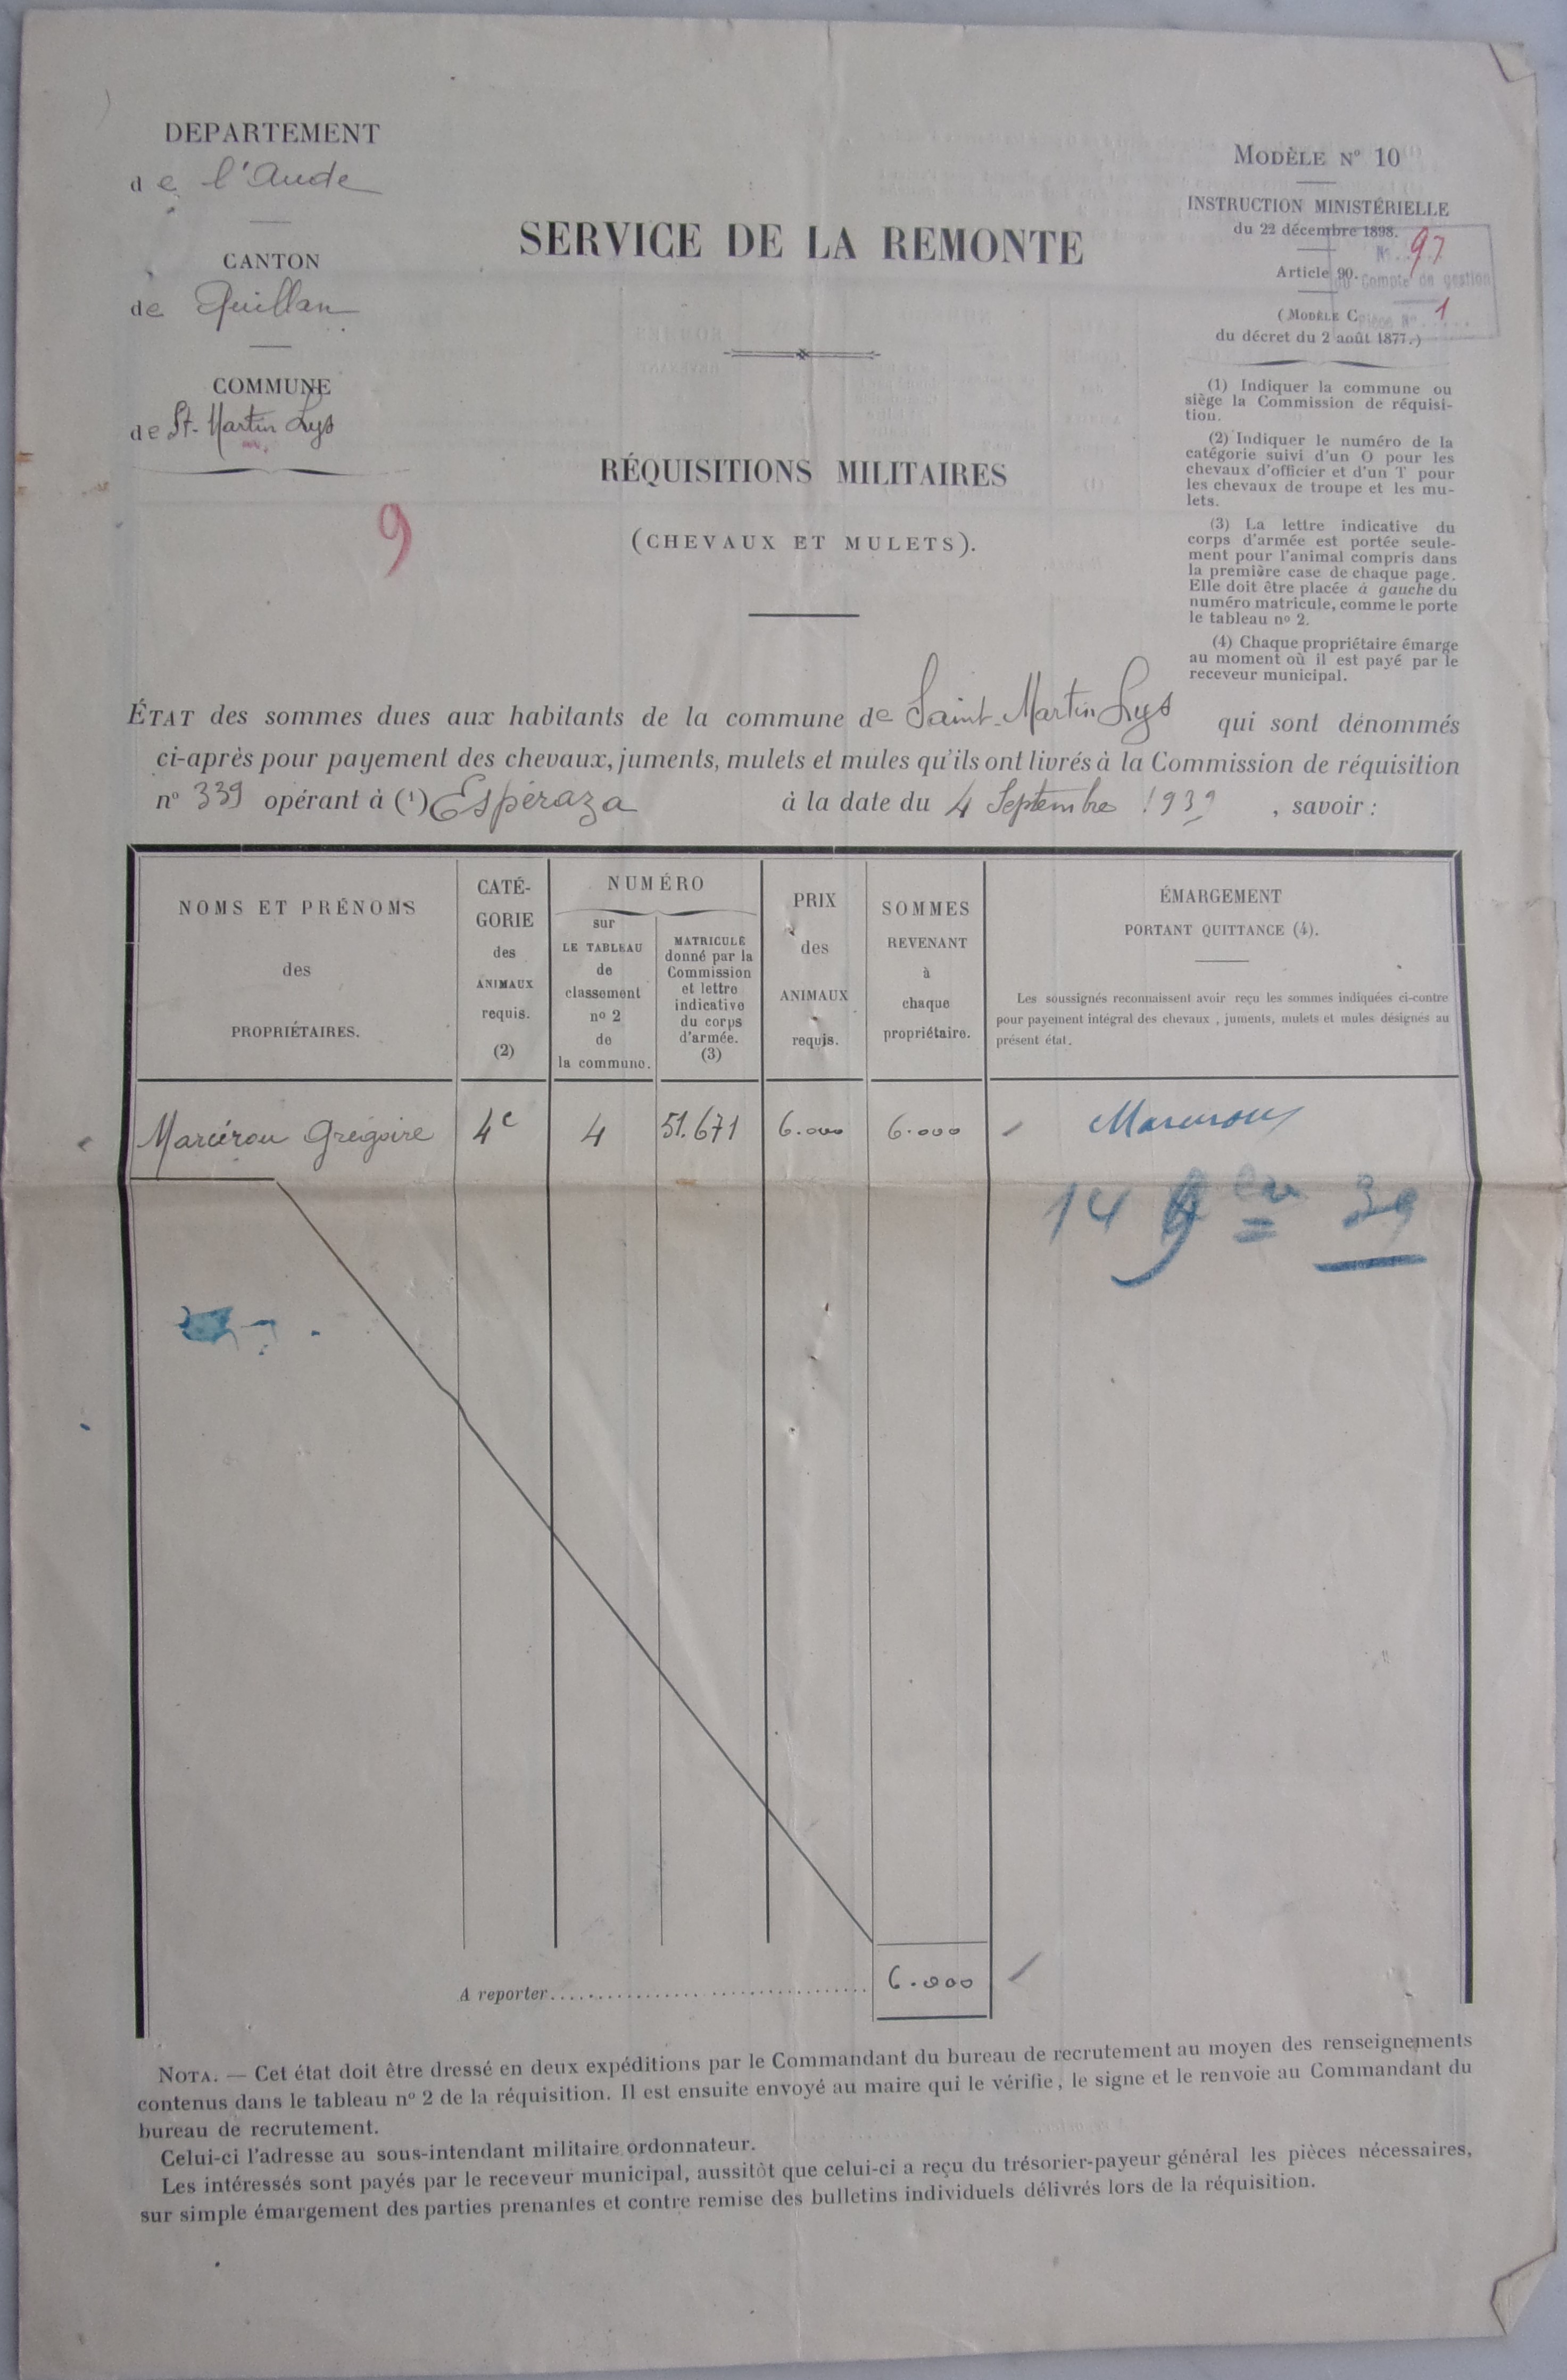 DEPARTEMENT
de l'Aude
CANTON
de Quillan
COMMUNE
de St. Martin Lys
9
SERVICE DE LA REMONTE
RÉQUISITIONS MILITAIRES
(CHEVAUX ET MULETS).
MODÈLE Nº 10
INSTRUCTION MINISTÉRIELLE
du 22 décembre 1898.
Nº 97
Article 90.
du Compte de gestion
(MODÈLE C
Pièce Nº 1
du décret du 2 août 1877.)
(1) Indiquer la commune ou
siège la Commission de réquisi-
tion.
(2) Indiquer le numéro de la
catégorie suivi d'un O pour les
chevaux d'officier et d'un T pour
les chevaux de troupe et les mu-
lets.
(3) La lettre indicative du
corps d'armée est portée seule-
ment pour l'animal compris dans
la première case de chaque page.
Elle doit être placée à gauche du
numéro matricule, comme le porte
le tableau nº 2.
(4) Chaque propriétaire émarge
au moment où il est payé par le
receveur municipal.
ÉTAT des sommes dues aux habitants de la commune de Saint-Martin Lys qui sont dénommés
ci-après pour payement des chevaux, juments, mulets et mules qu'ils ont livrés à la Commission de réquisition
nº 339 opérant à (1) Espéraza à la date du 4 Septembre 1939, savoir :
NOMS ET PRÉNOMS
des
PROPRIÉTAIRES.
CATÉ-
GORIE
des
ANIMAUX
requis.
(2)
NUMÉRO
sur
LE TABLEAU
de
classement
nº 2
de
la commune.
MATRICULE
donné par la
Commission
et lettre
indicative
du corps
d'armée.
(3)
PRIX
des
ANIMAUX
requis.
SOMMES
REVENANT
à
chaque
propriétaire.
ÉMARGEMENT
PORTANT QUITTANCE (4).
Les soussignés reconnaissent avoir reçu les sommes indiquées ci-contre
pour payement intégral des chevaux, juments, mulets et mules désignés au
présent état.
Marcérou Grégoire 4e 4 51.671 6.000 6.000 Marcerou
14 9bre 39
A reporter 6.000
NOTA. — Cet état doit être dressé en deux expéditions par le Commandant du bureau de recrutement au moyen des renseignements
contenus dans le tableau nº 2 de la réquisition. Il est ensuite envoyé au maire qui le vérifie, le signe et le renvoie au Commandant du
bureau de recrutement.
Celui-ci l'adresse au sous-intendant militaire ordonnateur.
Les intéressés sont payés par le receveur municipal, aussitôt que celui-ci a reçu du trésorier-payeur général les pièces nécessaires,
sur simple émargement des parties prenantes et contre remise des bulletins individuels délivrés lors de la réquisition.